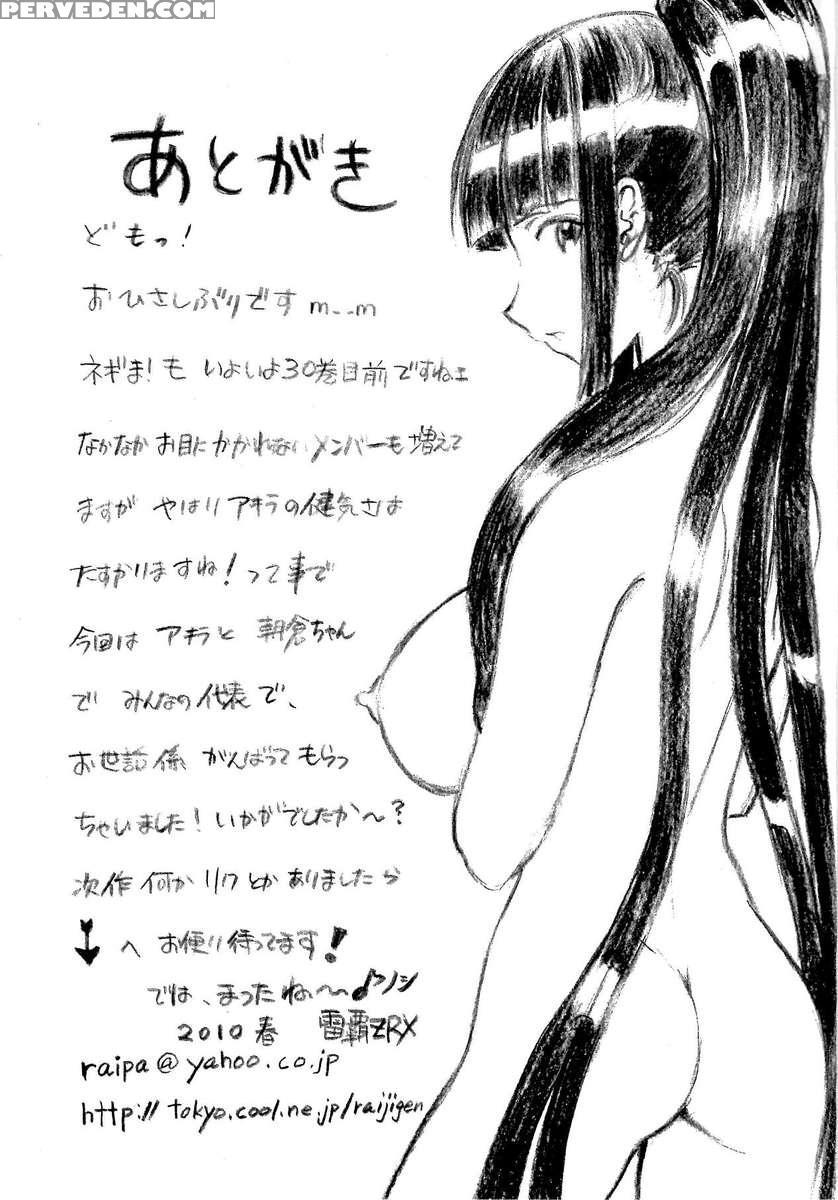 PERVEDEN.COM
あとがき
どもっ!
おひさしぶりです m--m
ネギま!も いよいよ30巻目前ですねェ
なかなかお目にかかれないメンバーも増えて
ますが やはりアキラの健気さは
たすかりますね!って事で
今回は アキラと 朝倉ちゃん
で みんなの代表で、
お世話係 がんばって もらっ
ちゃいました!いかがでしたか〜?
次作 何か リク とか ありましたら
↓ へ お便り待ってます!
では、まったねぃ〜♪ノシ
2010 春 雷覇ZRX
raipa@yahoo.co.jp
http://tokyo.cool.ne.jp/raijigen